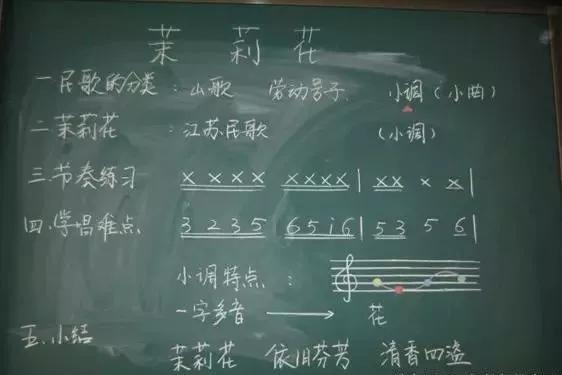 茉 莉 花
一.民歌的分类：山歌 劳动号子 小调（小曲）
二.茉莉花 ：江苏民歌 （小调）
三.节奏练习 X X X X X X X X | X X X X |
四.学唱难点 3 2 3 5 6 5 i 6 | 5 3 5 6 |
小调特点：
一字多音 → 花
五.小结
茉莉花 依旧芬芳 清香四溢